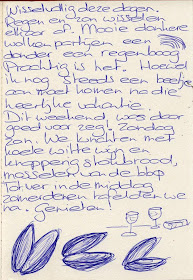 Wisselvallig deze dagen.
Regen en zon wisselen
elkaar af. Mooie donkere
wolken partijen een
donder een regenboog
Prachtig is het. Hoewel
ik nog steeds een beetje
aan moet komen na die
heerlijke vakantie.
Dit weekend, was daar
goed voor zeg! Zondag
zon. We lunchten met
koele witte wijn en
knapperig stokbrood,
mosselen van de bbq
Tot ver in de middag
zomerderen tafelden we
na. genieten!